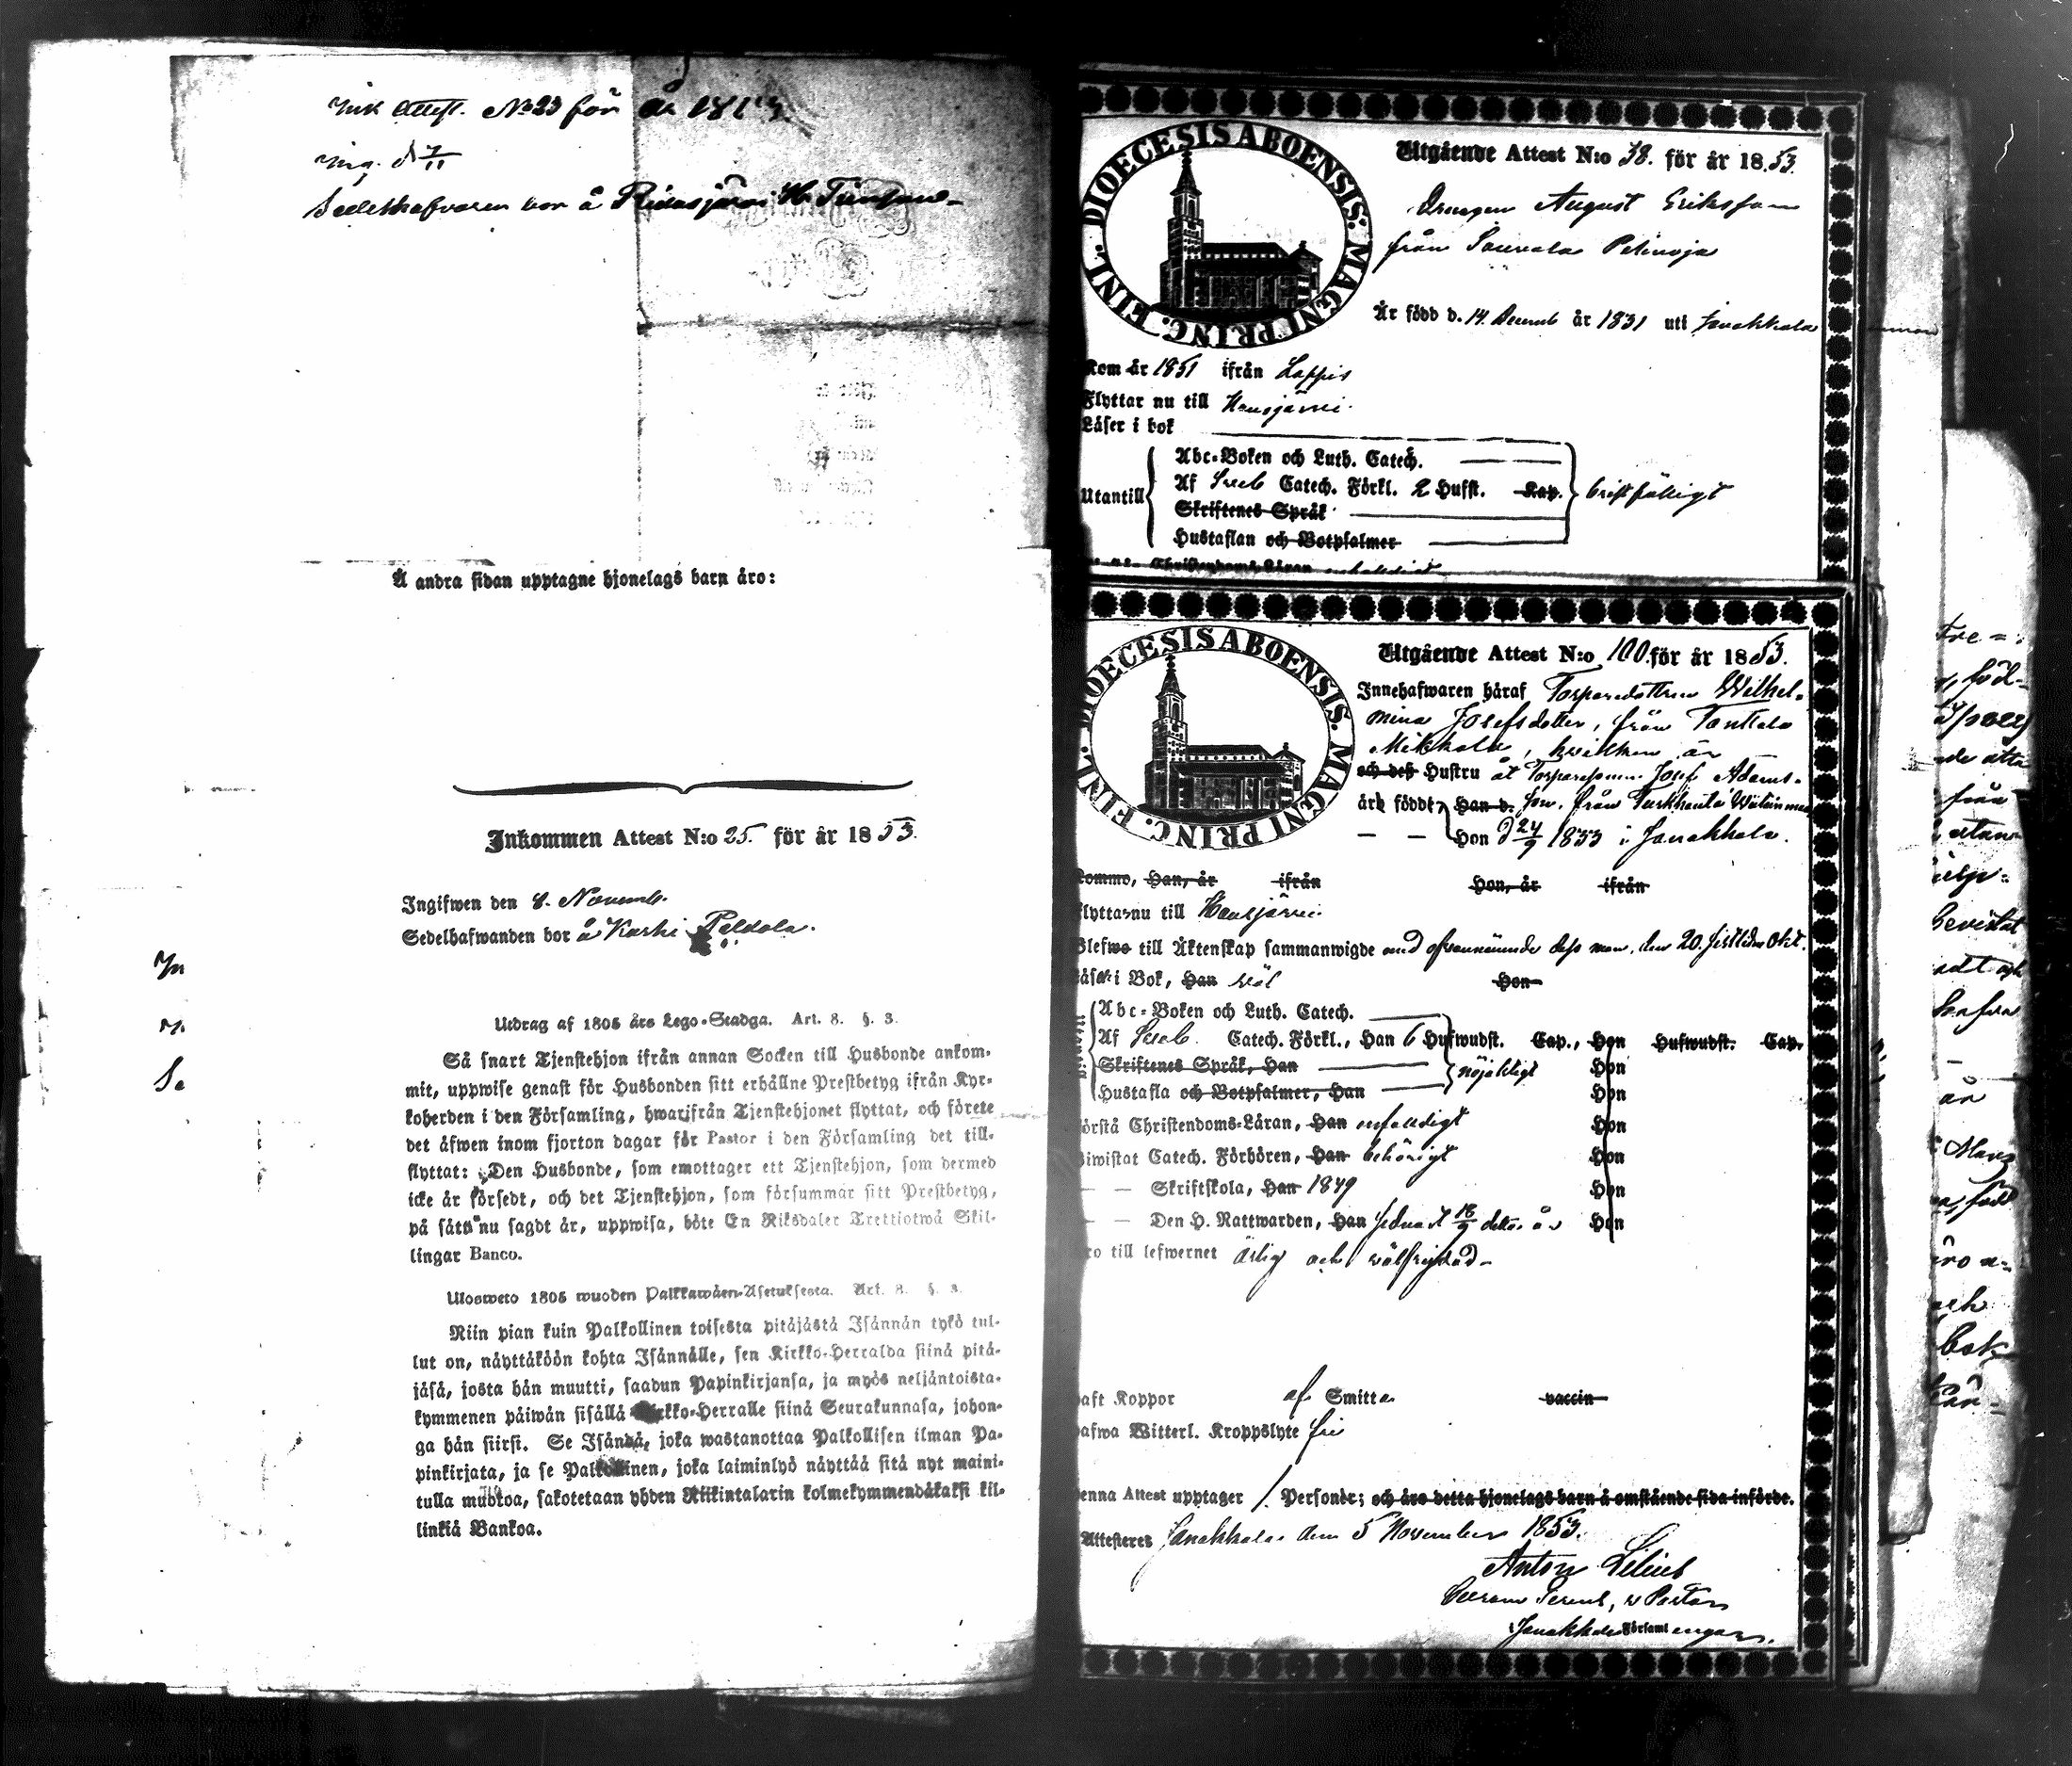 Ink Attest. No 23 för år 1853.
Ing. d 7/11
Sedelhafvaren bor å Ridasjärvi
Å andra sidan upptagne hjonelags barn äro:
Inkommen Attest N:o 25. för år 1853.
Ingifwen den 8. Novemb.
Sedelhafwanden bor å Karhi Peldola.
Utdrag af 1805 års Lego-Stadga. Art. 8. §. 3.
Så snart Tjenstehjon ifrån annan Socken till Husbonde ankom-
mit, uppwise genast för Husbonden sitt erhållne Prestbetyg ifrån Kyr-
koherden i den Församling, hwarifrån Tjenstehjonet flyttat, och förete
det äfwen inom fjorton dagar för Pastor i den Församling det till-
flyttat: Den Husbonde, som emottager ett Tjenstehjon, som dermed
icke är försedt, och det Tjenstehjon, som försummar sitt Prestbetyg,
på sätt nu sagdt är, uppwisa, böte En Riksdaler Trettiotwå Skil-
lingar Banco.
Ulosweto 1805 wuoden Palkkawäen-Asetuksesta. Art. 8. §. 3.
Niin pian kuin Palkollinen toisesta pitäjästä Isännän tykö tul-
lut on, näyttäköön kohta Isännälle, sen Kirkko-Herralda siinä pitä-
jäsä, josta hän muutti, saadun Papinkirjansa, ja myös neljäntoista-
kymmenen päiwän sisällä Kirkko-Herralle siinä Seurakunnasa, johon-
ga hän siirsi. Se Isändä, joka wastanottaa Palkollisen ilman Pa-
pinkirjata, ja se Palkollinen, joka laiminlyö näyttää sitä nyt maini-
tulla muotoa, sakotetaan yhden Riikintalarin kolmekymmendäkaksi kil-
linkiä Bankoa.
DIOECESIS ABOENSIS. MAGNI PRINC. FINL.
Utgående Attest N:o 38. för år 1853.
Drengen August Eriksson
från Sauvala Pelinoja
Är född d. 14 Decemb år 1831 uti Janakkala
Kom år 1851 ifrån Loppis
Flyttar nu till Hausjärvi.
Läser i bok
Utantill
Abc-Boken och Luth. Catech.
Af Sveb Catech. Förkl. 2 Hufst. Kap. bristfälligt
Skriftenes Språk
Hustaflan och Botpsalmer
DIOECESIS ABOENSIS. MAGNI PRINC. FINL.
Utgående Attest N:o 100. för år 1853.
Innehafwaren häraf Torparedottren Wilhel-
mina Josefsdotter, från Tanttala
Mikkola, hvilken är
och deß Hustru åt Torparesonen Josef Adams-
äro födde, Han d. son. från Turkhauta
Hon d 24/9 1833 i Janakkala.
Kommo, Han, år ifrån Hon, år ifrån
Flytta nu till Hausjärvi
Blefwo till Äktenskap sammanwigde med ofvannämnde dess man, den 20. sistlidne Okt.
Läsa i Bok, Han väl Hon
Abc-Boken och Luth. Catech.
Af Sveb. Catech. Förkl., Han 6 Hufwudst. Cap., Hon Hufwudst. Cap.
Skriftenes Språk, Han nöjaktigt Hon
Hustafla och Botpsalmer, Han Hon
Förstå Christendoms-Läran, Han enfaldigt Hon
Biwistat Catech. Förhören, Han behörigt Hon
— — Skriftskola, Han 1849 Hon
— — Den H. Nattwarden, Han sednast 18/9 detta år Hon
Äro till lefwernet ärlig och välfrejdad
Haft Koppor af Smitta vaccin
Hafwa Witterl. Kroppslyte fri
Denna Attest upptager 1. Personer; och äro detta hjonelags barn å omstående sida införde.
Attesteras Janakkala den 5 November 1853.
Anton Lilius
v Pastor
i Janakkala Församlingar.